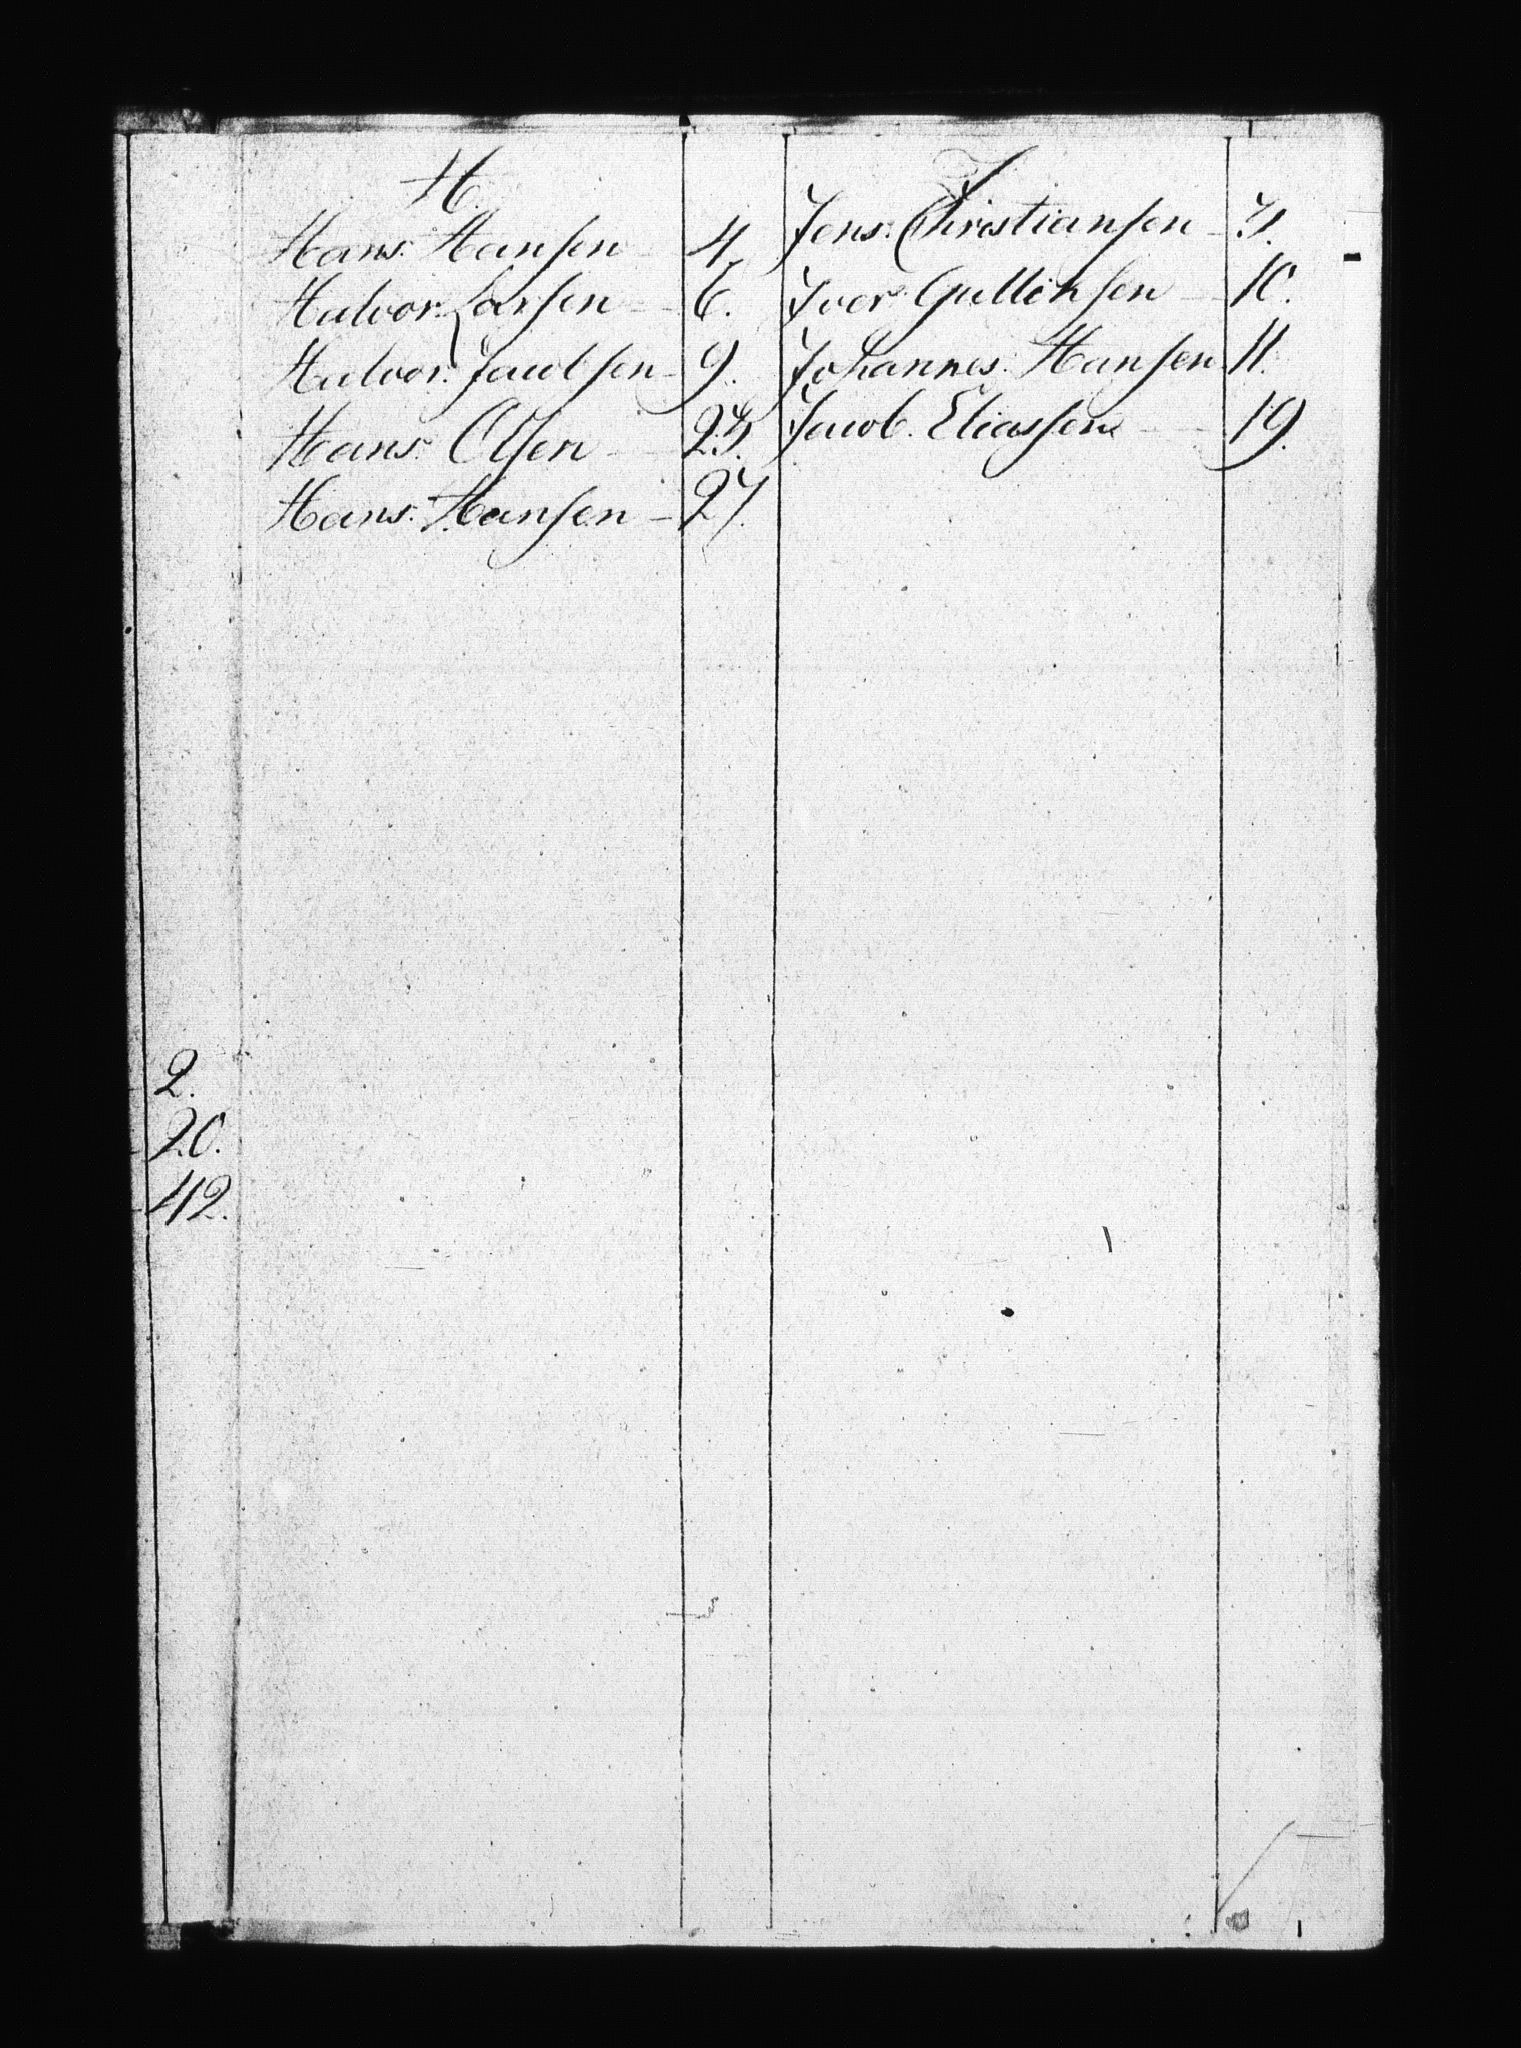 H.
Hans Hansen 4.
Halvor Larsen 6.
Halvor Jacobsen 9.
Hans Olsen 23.
Hans Hansen 27.
J
Jens Christiansen
Iver Gullichsen 10.
Johannes Hansen 11.
Jacob Eliassen 19.
2.
20.
42.